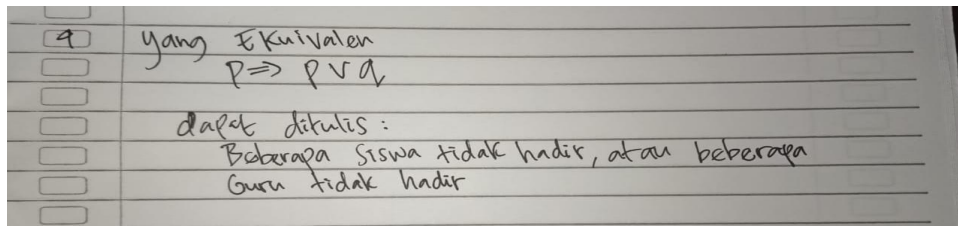 4 yang Ekuivalen
p => p v q
dapat ditulis :
Beberapa Siswa tidak hadir, atau beberapa
Guru tidak hadir